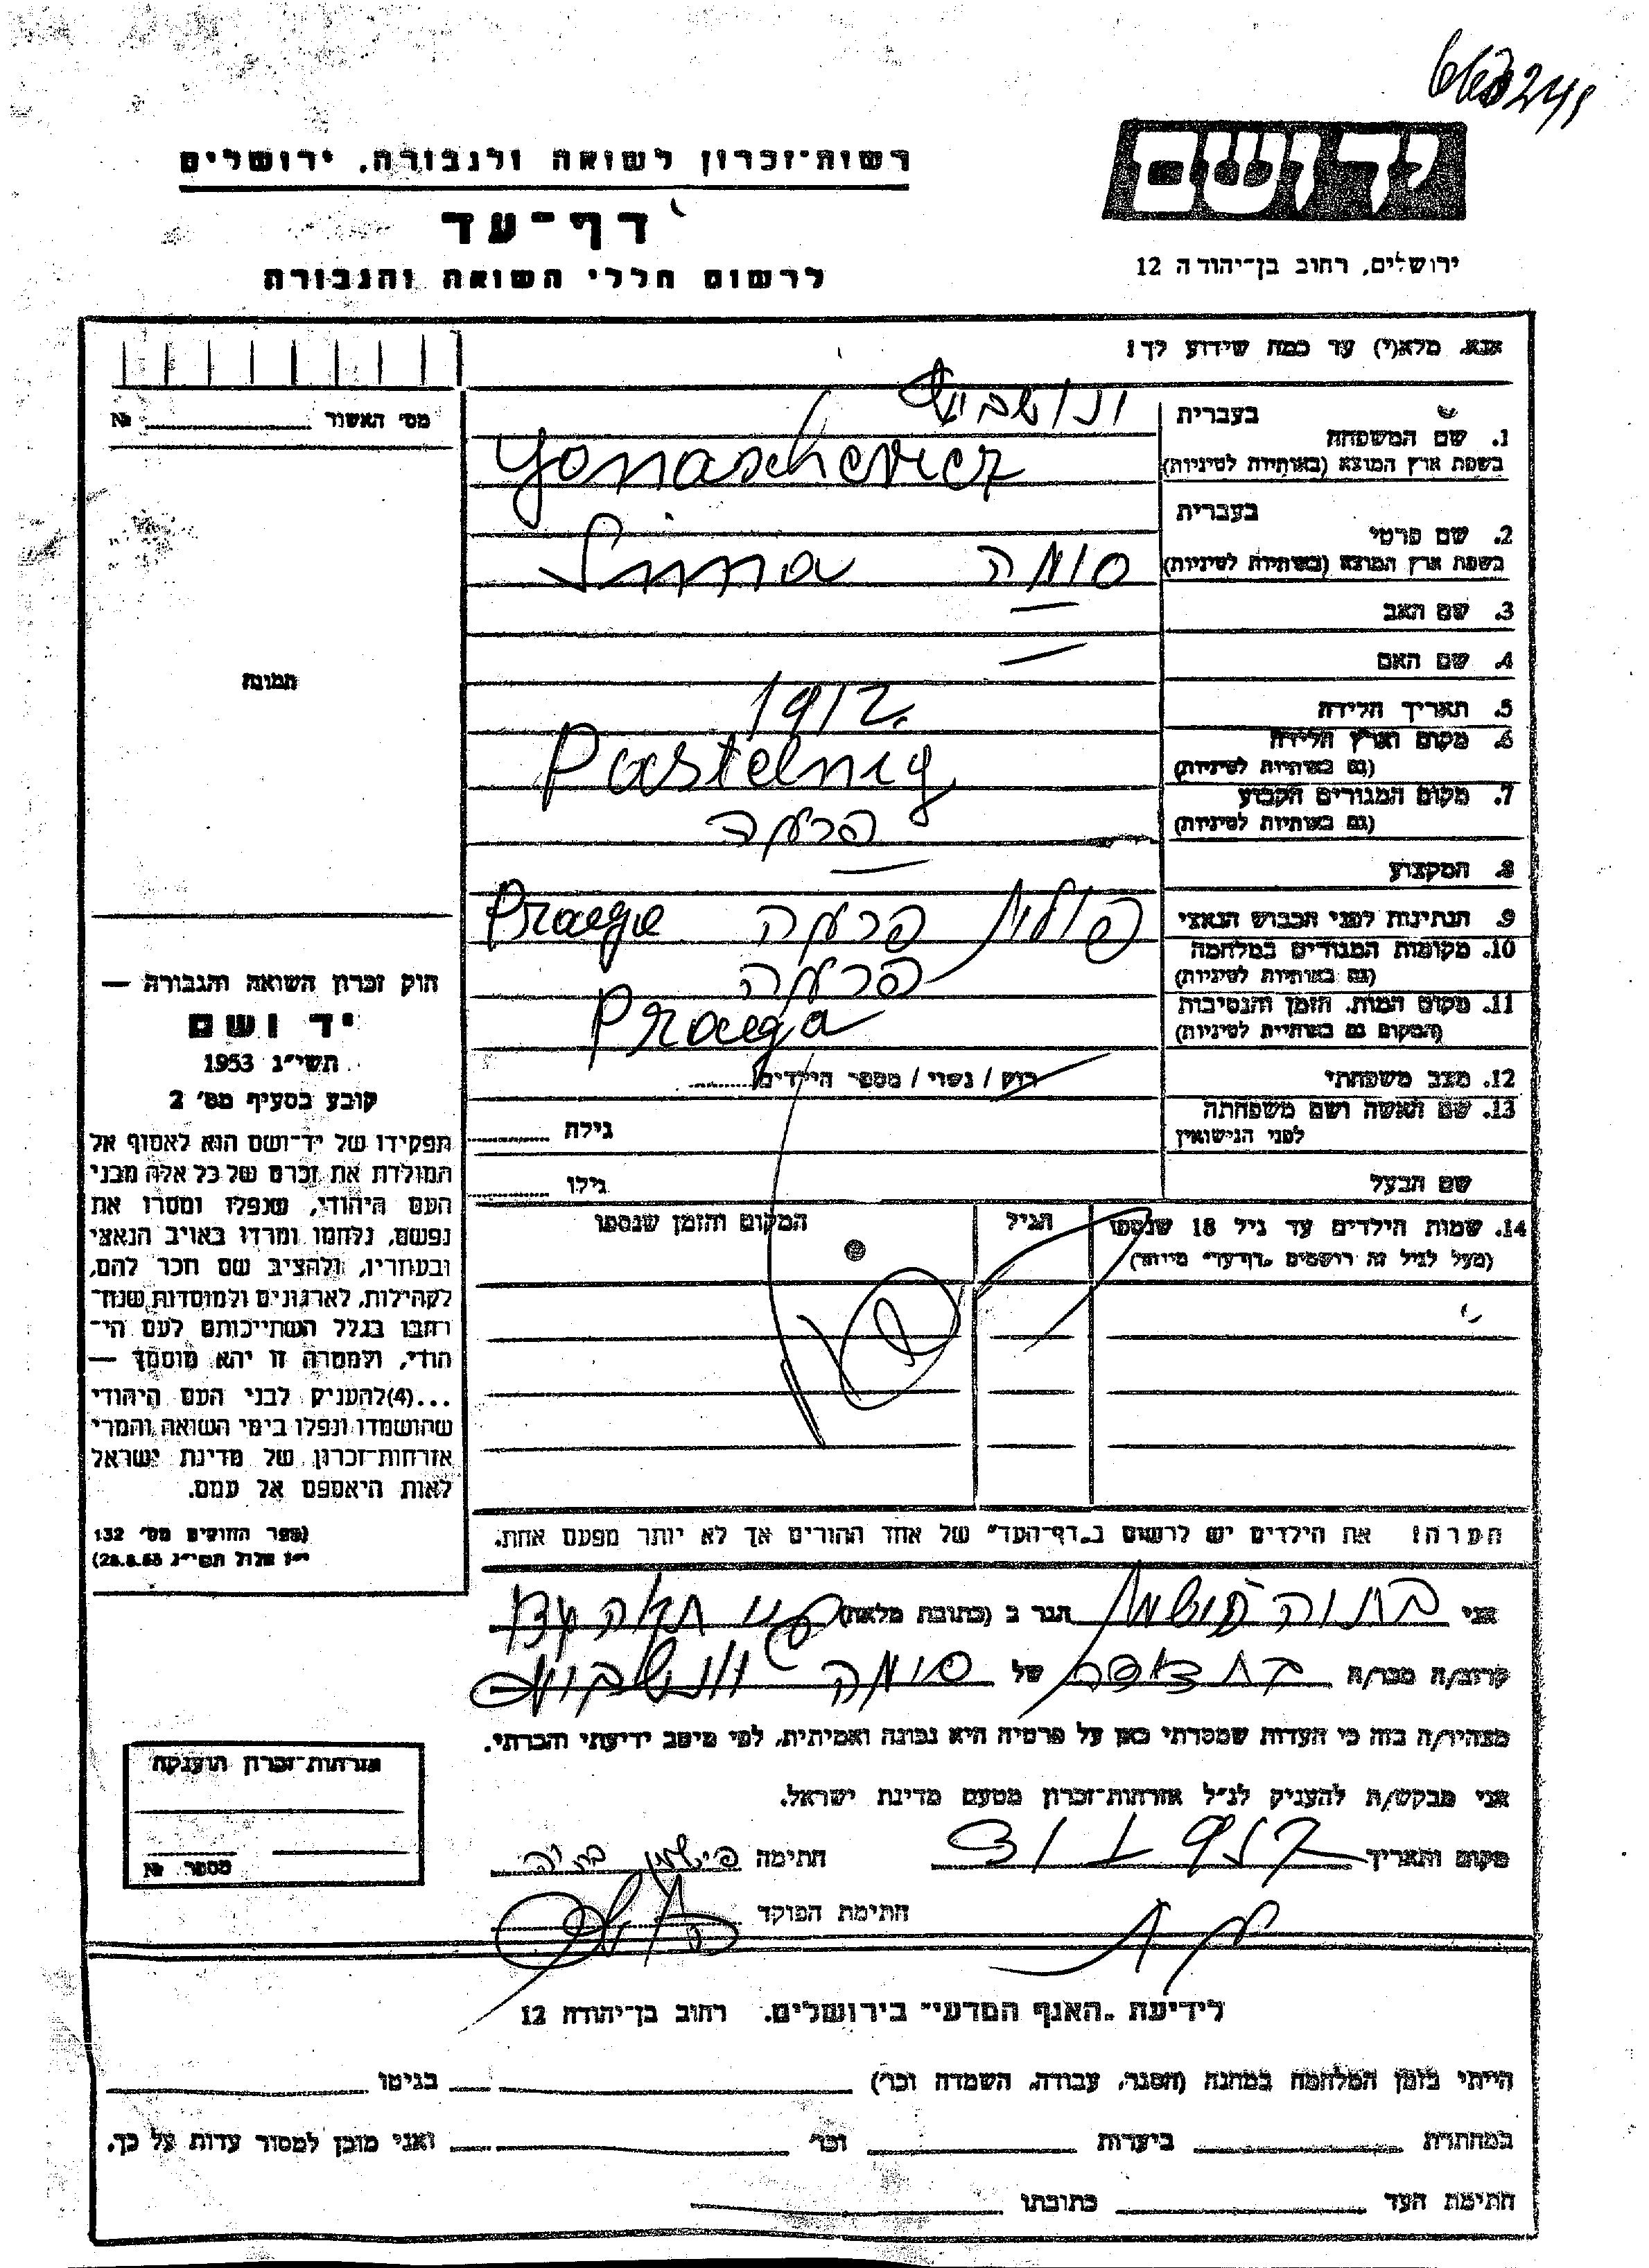 יד ושם
רשות-זכרון לשואה ולגבורה, ירושלים
דף-עד
לרשום חללי השואה והגבורה
ירושלים, רחוב בן-יהודה 12
אנא, מלא(י) עד כמה שידוע לך!
מס' האשור №
1. שם המשפחה
בעברית
בשפת ארץ המוצא (באותיות לטיניות)
Yonaschevicz
2. שם פרטי
בעברית
בשפת ארץ המוצא (באותיות לטיניות)
סימה Sima
3. שם האב —
4. שם האם —
5. תאריך הלידה 1912.
6. מקום וארץ הלידה
(גם באותיות לטיניות)
Pastelnig
7. מקום המגורים הקבוע
(גם באותיות לטיניות)
פרעגה
8. המקצוע —
9. הנתינות לפני הכבוש הנאצי
פולנית
10. מקומות המגורים במלחמה
(גם באותיות לטיניות)
פרעגה Praega
11. מקום המות, הזמן והנסיבות
(המקום גם באותיות לטיניות)
פרעגה
Praega
12. מצב משפחתי רווק / נשוי / מספר הילדים
13. שם האשה ושם משפחתה
לפני הנישואין
גילה
שם הבעל
גילו
14. שמות הילדים עד גיל 18 שנספו
(מעל לגיל זה רושמים "דף-עד" מיוחד)
הגיל
המקום והזמן שנספו
הערה! את הילדים יש לרשום ב"דף-העד" של אחד ההורים אך לא יותר מפעם אחת.
תמונה
חוק זכרון השואה והגבורה —
יד ושם
תשי"ג 1953
קובע בסעיף מס' 2
תפקידו של יד-ושם הוא לאסוף אל
המולדת את זכרם של כל אלה מבני
העם היהודי, שנפלו ומסרו את
נפשם, נלחמו ומרדו באויב הנאצי
ובעוזריו, ולהציב שם וזכר להם,
לקהילות, לארגונים ולמוסדות שנח-
רחבו בגלל השתייכותם לעם הי-
הודי, ולמטרה זו יהא מוסמך —
...(4) להעניק לבני העם היהודי
שהושמדו ונפלו בימי השואה והמרי
אזרחות-זכרון של מדינת ישראל
לאות היאספם אל עמם.
(ספר החוקים מס' 132
י"ז אלול תשי"ג 28.8.53)
אני בתיה פישמן הגר ב (כתובת מלאה)
קרוב/ה מכר/ה של סימה
מצהיר/ה בזה כי העדות שמסרתי כאן על פרטיה היא נכונה ואמיתית, לפי מיטב ידיעתי והכרתי.
אני מבקש/ת להעניק לנ"ל אזרחות-זכרון מטעם מדינת ישראל.
מקום ותאריך
חתימה פישמן בתיה
חתימת הפוקד
אזרחות-זכרון הוענקה
מספר №
לידיעת "האגף המדעי" בירושלים, רחוב בן-יהודה 12
הייתי בזמן המלחמה במחנה (הסגר, עבודה, השמדה וכו') בגיטו
במחתרת ביערות וכו' ואני מוכן למסור עדות על כך.
חתימת העד כתובתו